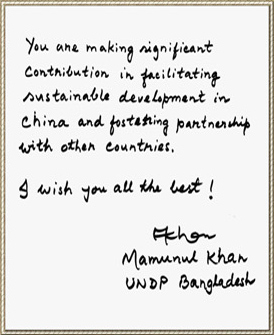 You are making significant
contribution in facilitating
sustainable development in
China and fostering partnership
with other countries.
I wish you all the best!
Mamunul Khan
UNDP Bangladesh